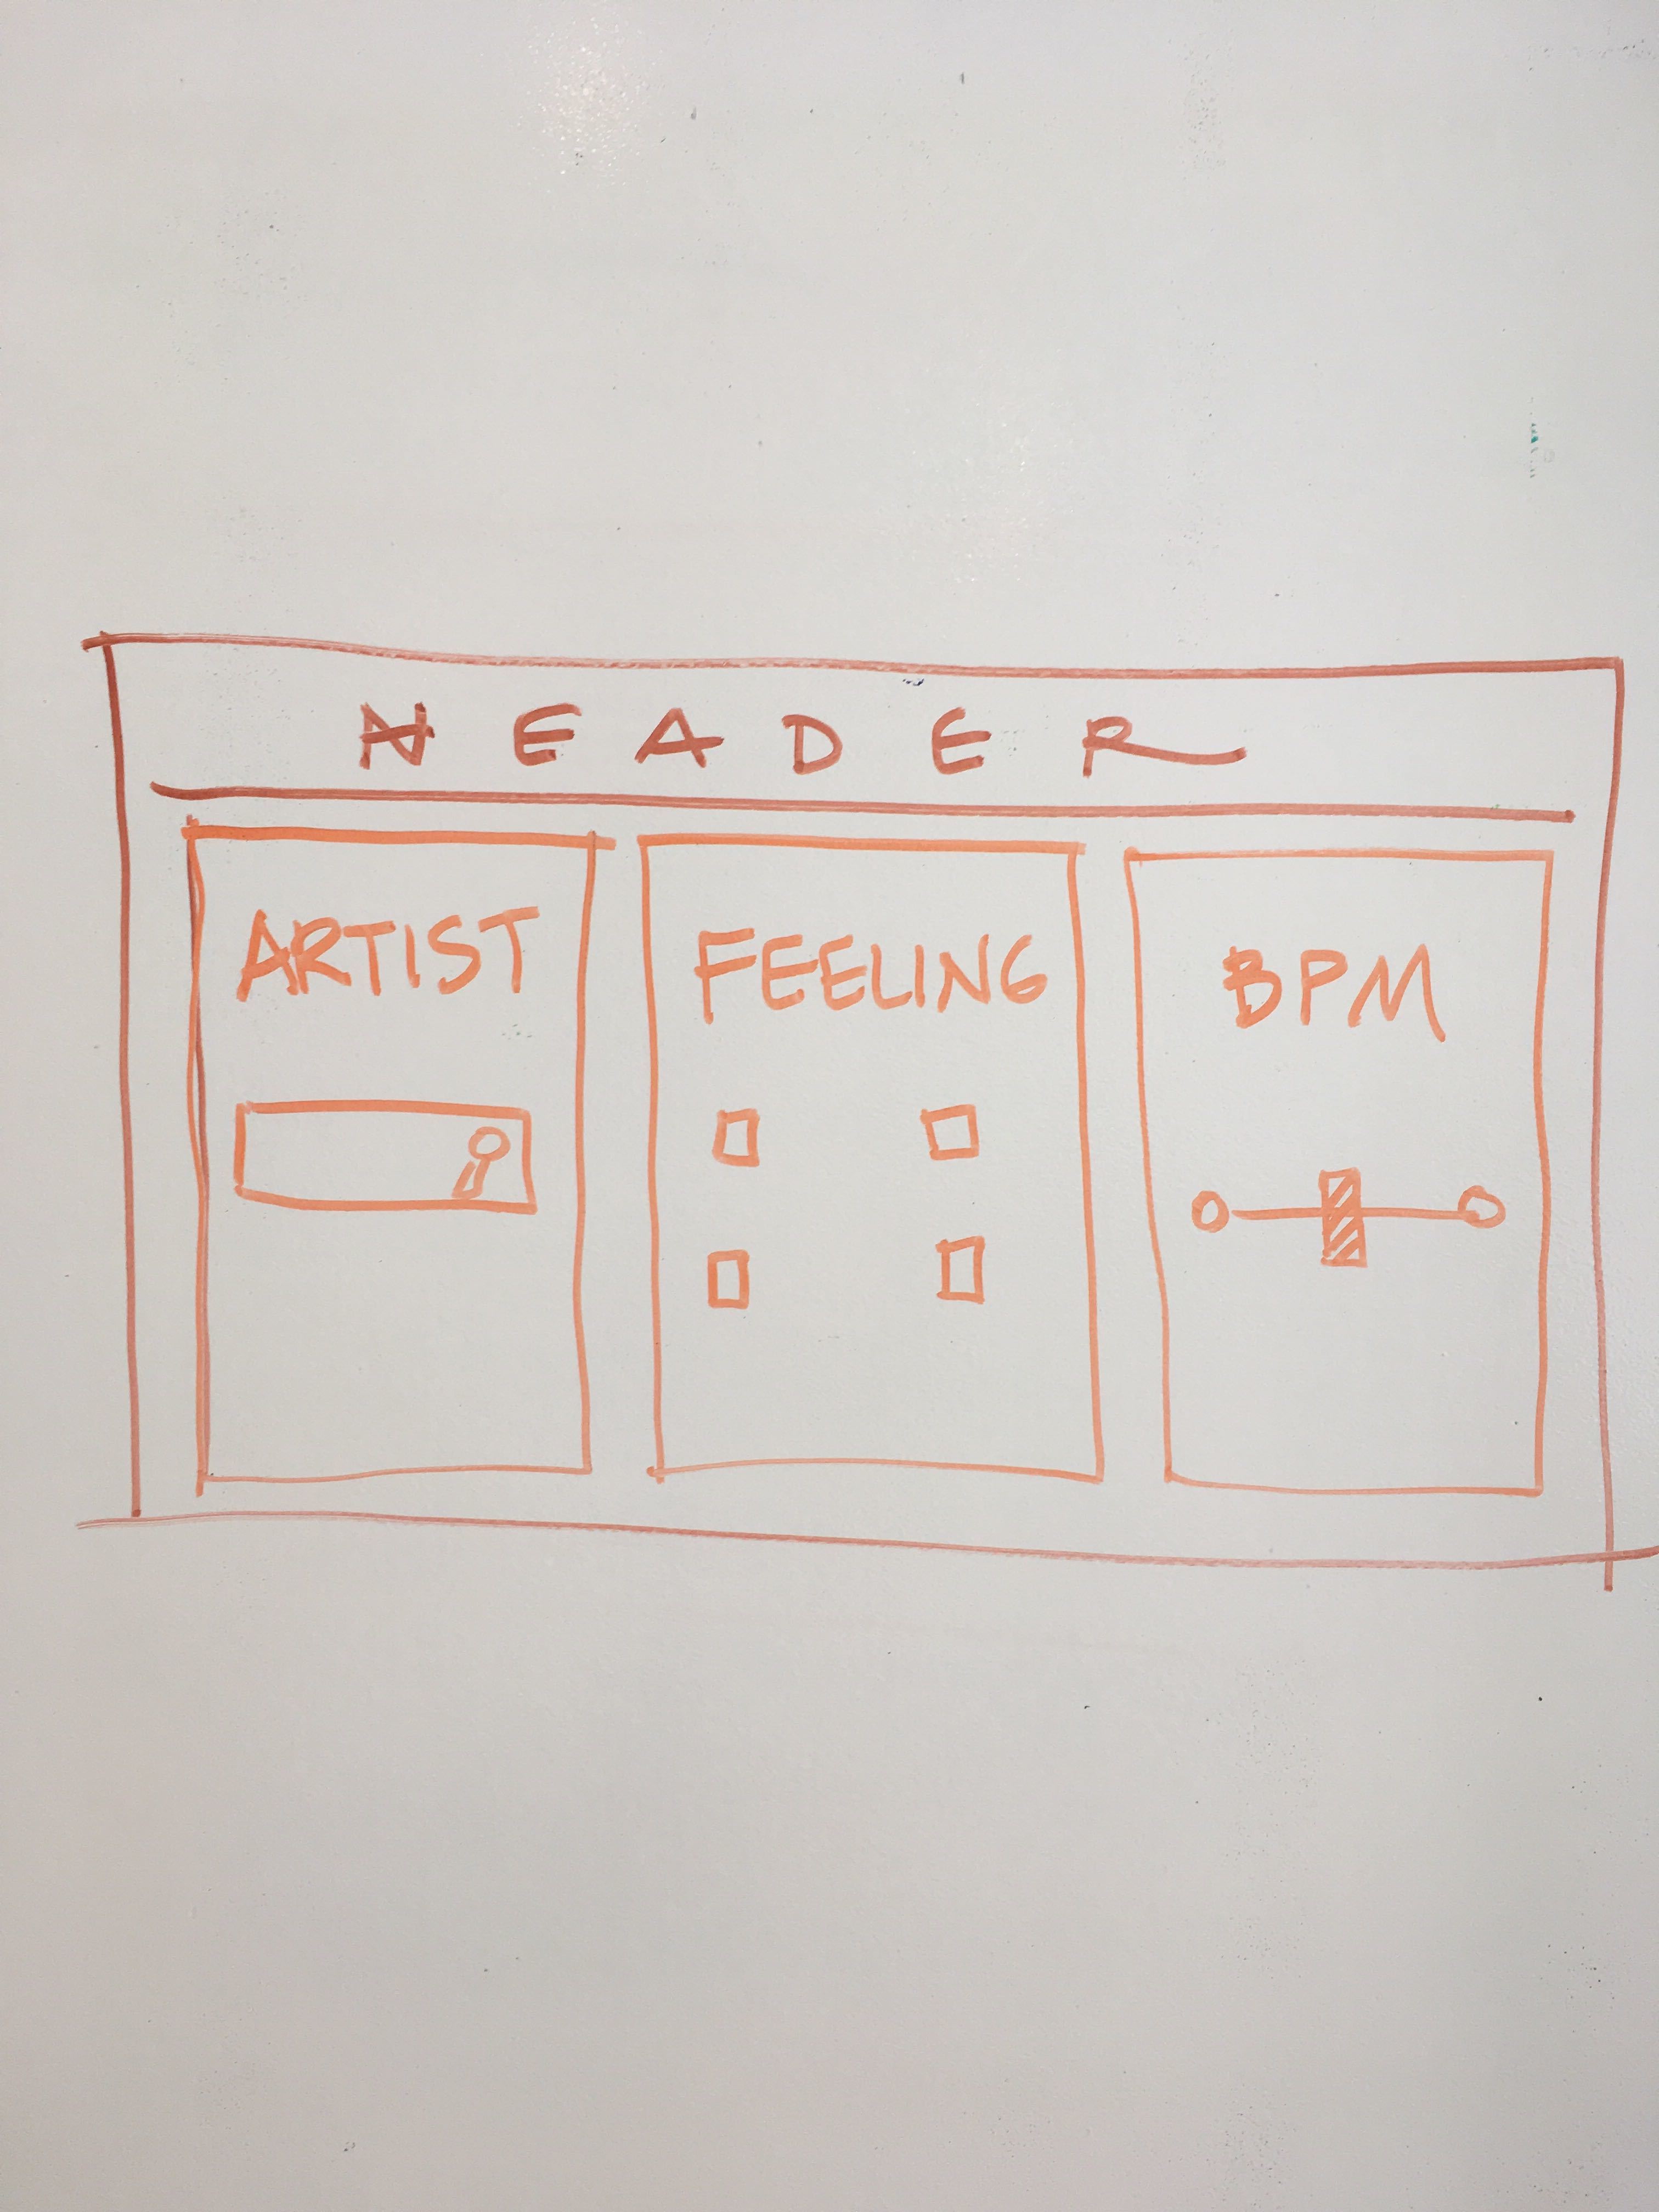 HEADER
ARTIST
FEELING
BPM